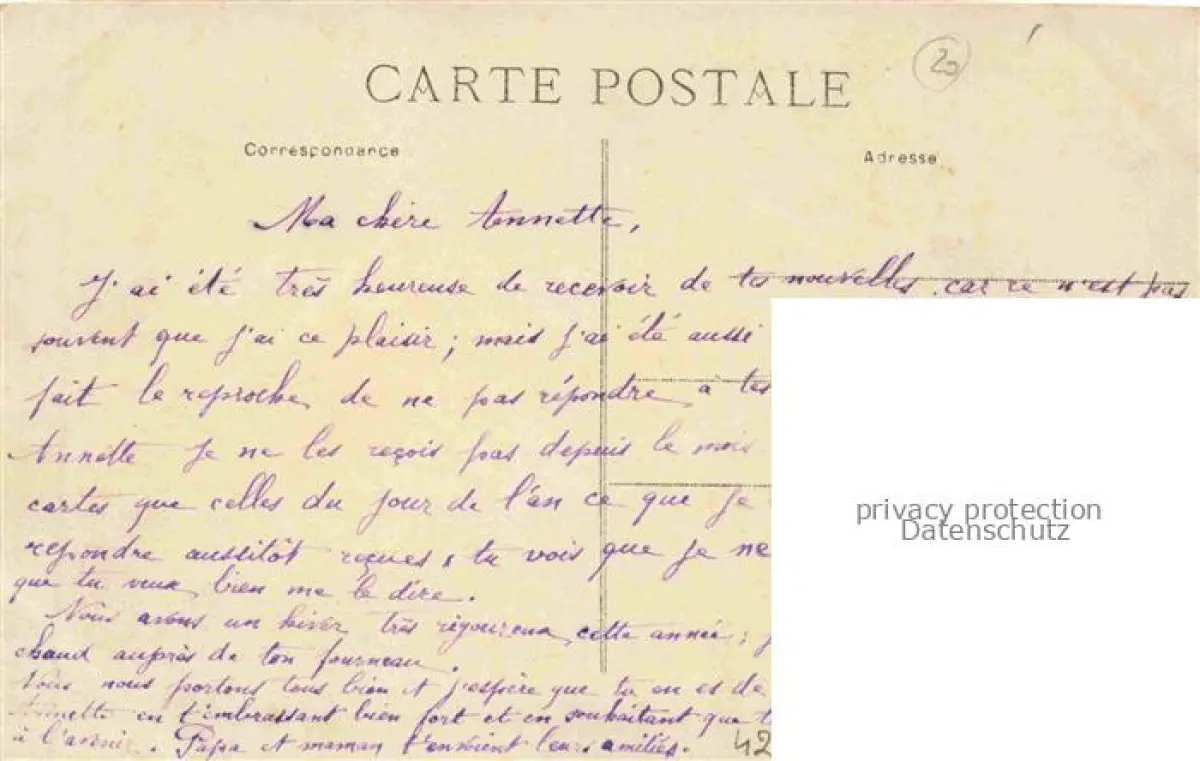 20
CARTE POSTALE
Correspondance
Adresse
Ma chère Annette,
J'ai été très heureuse de recevoir de tes nouvelles, car ce n'est pas
souvent que j'ai ce plaisir; mais j'ai été aussi
fait le reproche de ne pas répondre à tes
Annette Je ne les reçois pas depuis le mois
cartes que celles du jour de l'an ce que je
repondre aussitôt reçues, tu vois que je ne
que tu veux bien me le dire.
Nous avons un hiver très rigoureux cette année;
chaud auprès de ton fourneau.
Nous nous portons tous bien et j'espère que tu en es de
Annette en t'embrassant bien fort et en souhaitant que
à l'avenir. Papa et maman t'envoient leurs amitiés.
42
privacy protection
Datenschutz